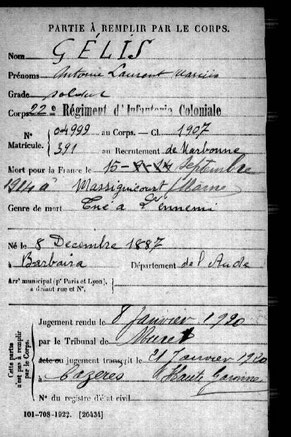 PARTIE À REMPLIR PAR LE CORPS.
Nom GÉLIS
Prénoms Antoine Laurent
Grade soldat
Corps 22e Régiment d'Infanterie Coloniale
N° 04999 au Corps. — Cl. 1907
Matricule. 391 au Recrutement de Narbonne
Mort pour la France le 15 septembre
1914 à Massiguicourt /Marne
Genre de mort Tué à L'ennemi
Né le 8 Decembre 1887
à Barbaira Département de l'Aude
Arrt municipal (pr Paris et Lyon),
à défaut rue et N°.
Cette partie
n'est pas à remplir
par le Corps.
Jugement rendu le 8 Janvier 1920
par le Tribunal de Muret
acte ou jugement transcrit le 21 Janvier 1920
à Cazères Haute Garonne
N° du registre d'état civil
101-708-1922. [26434]